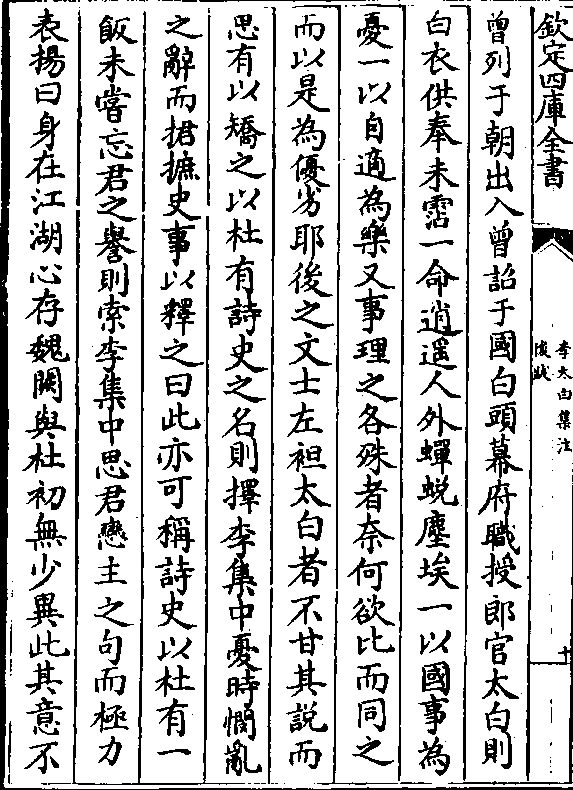 欽定四庫全書
李太白集注
後跋
十
曾列于朝出入曾詔于國白頭幕府職授郎官太白則
白衣供奉未霑一命逍遥人外蟬蜕塵埃一以國事為
憂一以自適為樂又事理之各殊者奈何欲比而同之
而以是為優劣耶後之文士左袒太白者不甘其説而
思有以矯之以杜有詩史之名則擇李集中憂時憫亂
之辭而捃摭史事以釋之曰此亦可稱詩史以杜有一
飯未嘗忘君之譽則索李集中思君戀主之句而極力
表揚曰身在江湖心存魏闕與杜初無少異此其意不